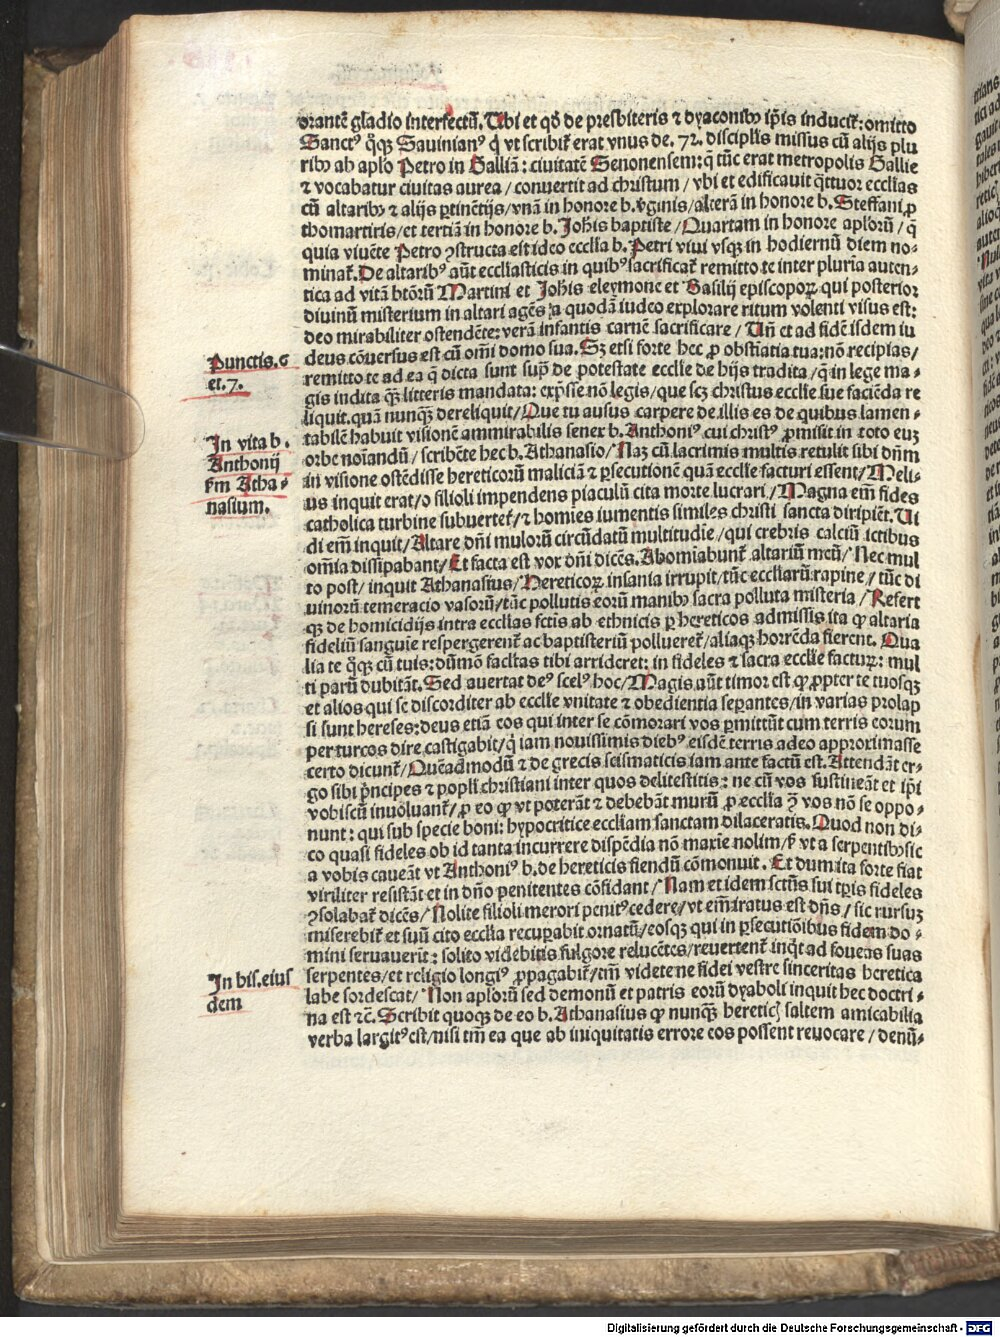 orantē gladio interfectū. Ubi et qđ de presbiteris ⁊ dyaconibꝫ ip̄is inducit̄: omitto
Sanctꝰ q̊qꝫ Sauinianꝰ q̇ vt scribit̄ erat vnus de .72. discip̄lis missus cū alijs plu
ribꝫ ab ap̄lo Petro in Galliā: ciuitatē Senonensem: q̄ tūc erat metropolis Gallie
⁊ vocabatur ciuitas aurea / conuertit ad christum / vbi et edificauit q̄ttuor eccl̄ias
cū altaribꝫ ⁊ alijs ꝑtinētijs / vnā in honore b. v̄ginis / alterā in honore b. Steffani ꝓ
thomartiris / et tertiā in honore b. Joh̄is baptiste / Quartam in honore ap̄lorū / q̄
quia viuēte Petro ꝯstructa est ideo eccl̄ia b. Petri viui vsqꝫ in hodiernū diem no⸗
minat̄. De altaribꝰ aūt eccl̄iasticis in quibꝰ sacrificat̄ remitto te inter pluria auten⸗
tica ad vitā btōrū Martini et Joh̄is eleymone et Basilij episcopoꝝ qui posterior
diuinū misterium in altari agēs a quodā iudeo explorare ritum volenti visus est:
deo mirabiliter ostendēte: verā infantis carnē sacrificare / Un̄ et ad fidē isdem iu
deus cōuersus est cū om̄i domo sua. Sꝫ etsi forte hec ꝓ obstīatia tua: nō recipias /
Punctis. 6
et .7.
remitto te ad ea q̄ dicta sunt sup̄ de potestate eccl̄ie de hijs tradita / q̄ in lege ma⸗
gis indita qꝫ litteris mandata: exp̄sse nō legis / que scꝫ christus eccl̄ie sue faciēda re
liquit. quā nunqꝫ dereliquit / Que tu ausus carpere de illis es de quibus lamen⸗
In vita b.
Anthonij
s̄m Atha⸗
nasium.
tabilē habuit visionē ammirabilis senex b. Anthoniꝰ cui christꝰ ꝓmisit in toto euꝫ
orbe noīandū / scribēte hec b. Athanasio / Naꝫ cū lacrimis multis retulit sibi dn̄m
in visione ostēdisse hereticorū maliciā ⁊ ꝑsecutionē quā eccl̄ie facturi essent / Meli⸗
us inquit erat / o filioli impendens piaculū cita morte lucrari / Magna em̄ fides
catholica turbine subuertet̄ / ⁊ homies iumentis similes christi sancta diripiēt. Ui
di em̄ inquit / Altare dn̄i mulorū circūdatū multitudīe / qui crebris calciū ictibus
om̄ia dissipabant / Et facta est vox dn̄i dicēs. Abomīabunt̄ altariū meū / Nec mul
to post / inquit Athanasius / Hereticoꝝ insania irrupit / tūc eccl̄iarū rapine / tūc di
uinorū temeracio vasorū / tūc pollutis eorū manibꝫ sacra polluta misteria / Refert
qꝫ de homicidijs intra eccl̄ias fc̄tis ab ethnicis ꝑ hereticos admissis ita ꝙ altaria
fideliū sanguīe respergerent̄ ac baptisteriū pollueret̄ / aliaqꝫ horrēda fierent. Qua
lia te q̊qꝫ cū tuis: dūmō facl̄tas tibi arrideret: in fideles ⁊ sacra eccl̄ie facturꝝ: mul
ti parū dubitāt. Sed auertat deꝰ scelꝰ hoc / Magis aūt timor est ꝙ ꝓpter te tuosqꝫ
et alios qui se discorditer ab eccl̄ie vnitate ⁊ obedientia seꝑantes / in varias prolap
si sunt hereses: deus etiā eos qui inter se cōmorari vos ꝑmittūt cum terris eorum
per turcos dire castigabit / q̇ iam nouissimis diebꝰ eisdē terris adeo approximasse
certo dicunt̄ / Quēadmodū ⁊ de grecis scismaticis iam ante factū est. Attendāt er⸗
go sibi p̄ncipes ⁊ popl̄i christiani inter quos delitestitis: ne cū vos sustineāt et ip̄i
vobiscū inuoluant̄ / ꝓ eo ꝙ vt poterāt ⁊ debebāt murū ꝓ eccl̄ia ꝯ̄ vos nō se oppo⸗
nunt: qui sub specie boni: hypocritice eccl̄iam sanctam dilaceratis. Quod non di⸗
co quasi fideles ob id tanta incurrere dispēdia nō maxīe nolim / s̄ vt a serpentibꝫ sic
a vobis caueāt vt Anthoniꝰ b. de hereticis fiendū cōmonuit. Et dum ita forte fiat
viriliter resistāt et in dn̄o penitentes cōfidant / Nam et idem sctūs sui tp̄is fideles
ꝯsolabat̄ dicēs / Nolite filioli merori penitꝰ cedere / vt em̄ iratus est dn̄s / sic rursuꝫ
miserebit̄ et suū cito eccl̄ia recuꝑabit ornatū / eosqꝫ qui in ꝑsecutiōibus fidem do⸗
mini seruauerīt: solito videbitis fulgore relucētes / reuertent̄ inq̄t ad foueas suas
In his. eius
dem
serpentes / et religio longiꝰ ꝓpagabit̄ / tm̄ videte ne fidei vestre sinceritas heretica
labe sordescat / Non ap̄lorū sed demonū et patris eorū dyaboli inquit hec doctri⸗
na est ⁊c̄. Scribit quoqꝫ de eo b. Athanasius ꝙ nunqꝫ hereticꝭ saltem amicabilia
verba largitꝰ est / nisi tm̄ ea que ab iniquitatis errore eos possent reuocare / denū⸗
Digitalisierung gefördert durch die Deutsche Forschungsgemeinschaft - DFG